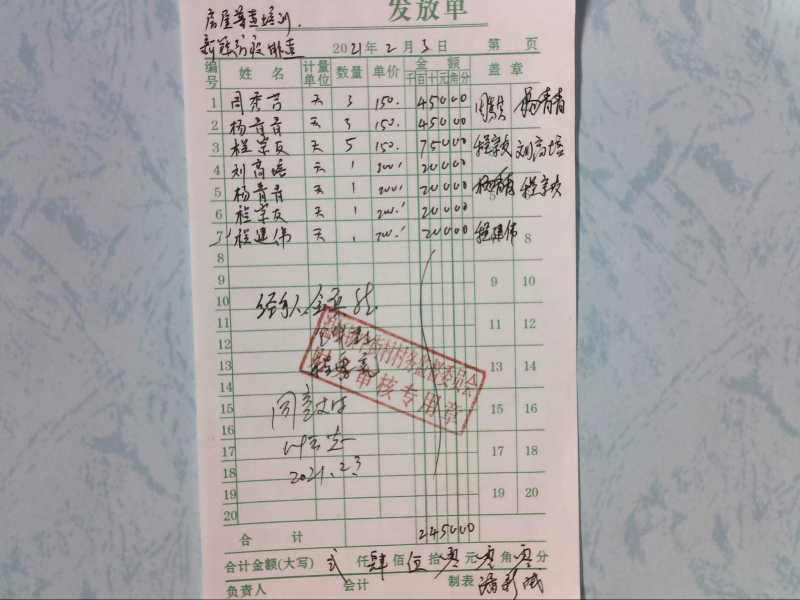 房屋普查培训.
发放单
新冠防疫排查 2021年2月3日 第 页
编号 姓名 计量单位 数量 单价 金额 盖章
千百十元角分
1 周秀芳 天 3 150. 45000
2 杨青青 天 3 150. 45000 杨青青
3 程学友 天 5 150. 75000 程学友 刘高培
4 刘高培 天 1 200. 20000
5 杨青青 天 1 200. 20000 杨青青 程学友
6 程学友 天 1 200. 20000
7 程建伟 天 1 200. 20000 程建伟 8
8
9 9 10
10 经手人
11 11 12
12
13 13 14
14 审核专用章
15 15 16
16
17 17 18
18 2021.2.3
19 19 20
20
合计 245000
合计金额(大写) 弍 仟 肆 佰 伍 拾 零 元 零 角 零 分
负责人 会计 制表